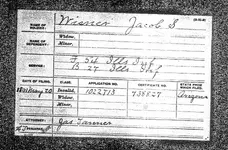 NAME OF SOLDIER: Wisner Jacob S
NAME OF DEPENDENT: Widow,
Minor,
SERVICE: F 54 Ills Inf
B 27 Ills Inf
DATE OF FILING. CLASS. APPLICATION NO. CERTIFICATE NO. STATE FROM WHICH FILED.
Invalid, 1022713 738827
Widow,
Minor,
ATTORNEY: Jas Tanner